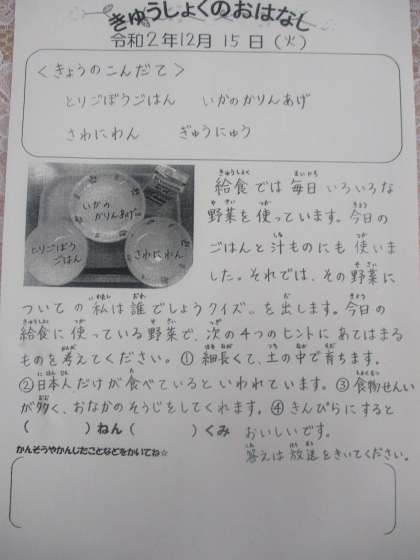 きゅうしょくのおはなし
令和2年12月 15日（火）
＜きょうのこんだて＞
とりごぼうごはん いかのかりんあげ
さわにわん ぎゅうにゅう
いかの
かりんあげ
とりごぼう
ごはん
さわにわん
給食では 毎日 いろいろな
野菜を使っています。今日の
ごはんと汁ものにも 使いま
した。それでは、その野菜に
ついての“私は誰でしょうクイズ”を出します。今日の
給食に使っている野菜で、次の4つのヒントにあてはまる
ものを考えてください。①細長くて、土の中で育ちます。
②日本人だけが食べているといわれています。③食物せんい
が多く、おなかのそうじをしてくれます。④きんぴらにすると
おいしいです。
（ ）ねん（ ）くみ
答えは放送をきいてください。
かんそうやかんじたことなどをかいてね☆